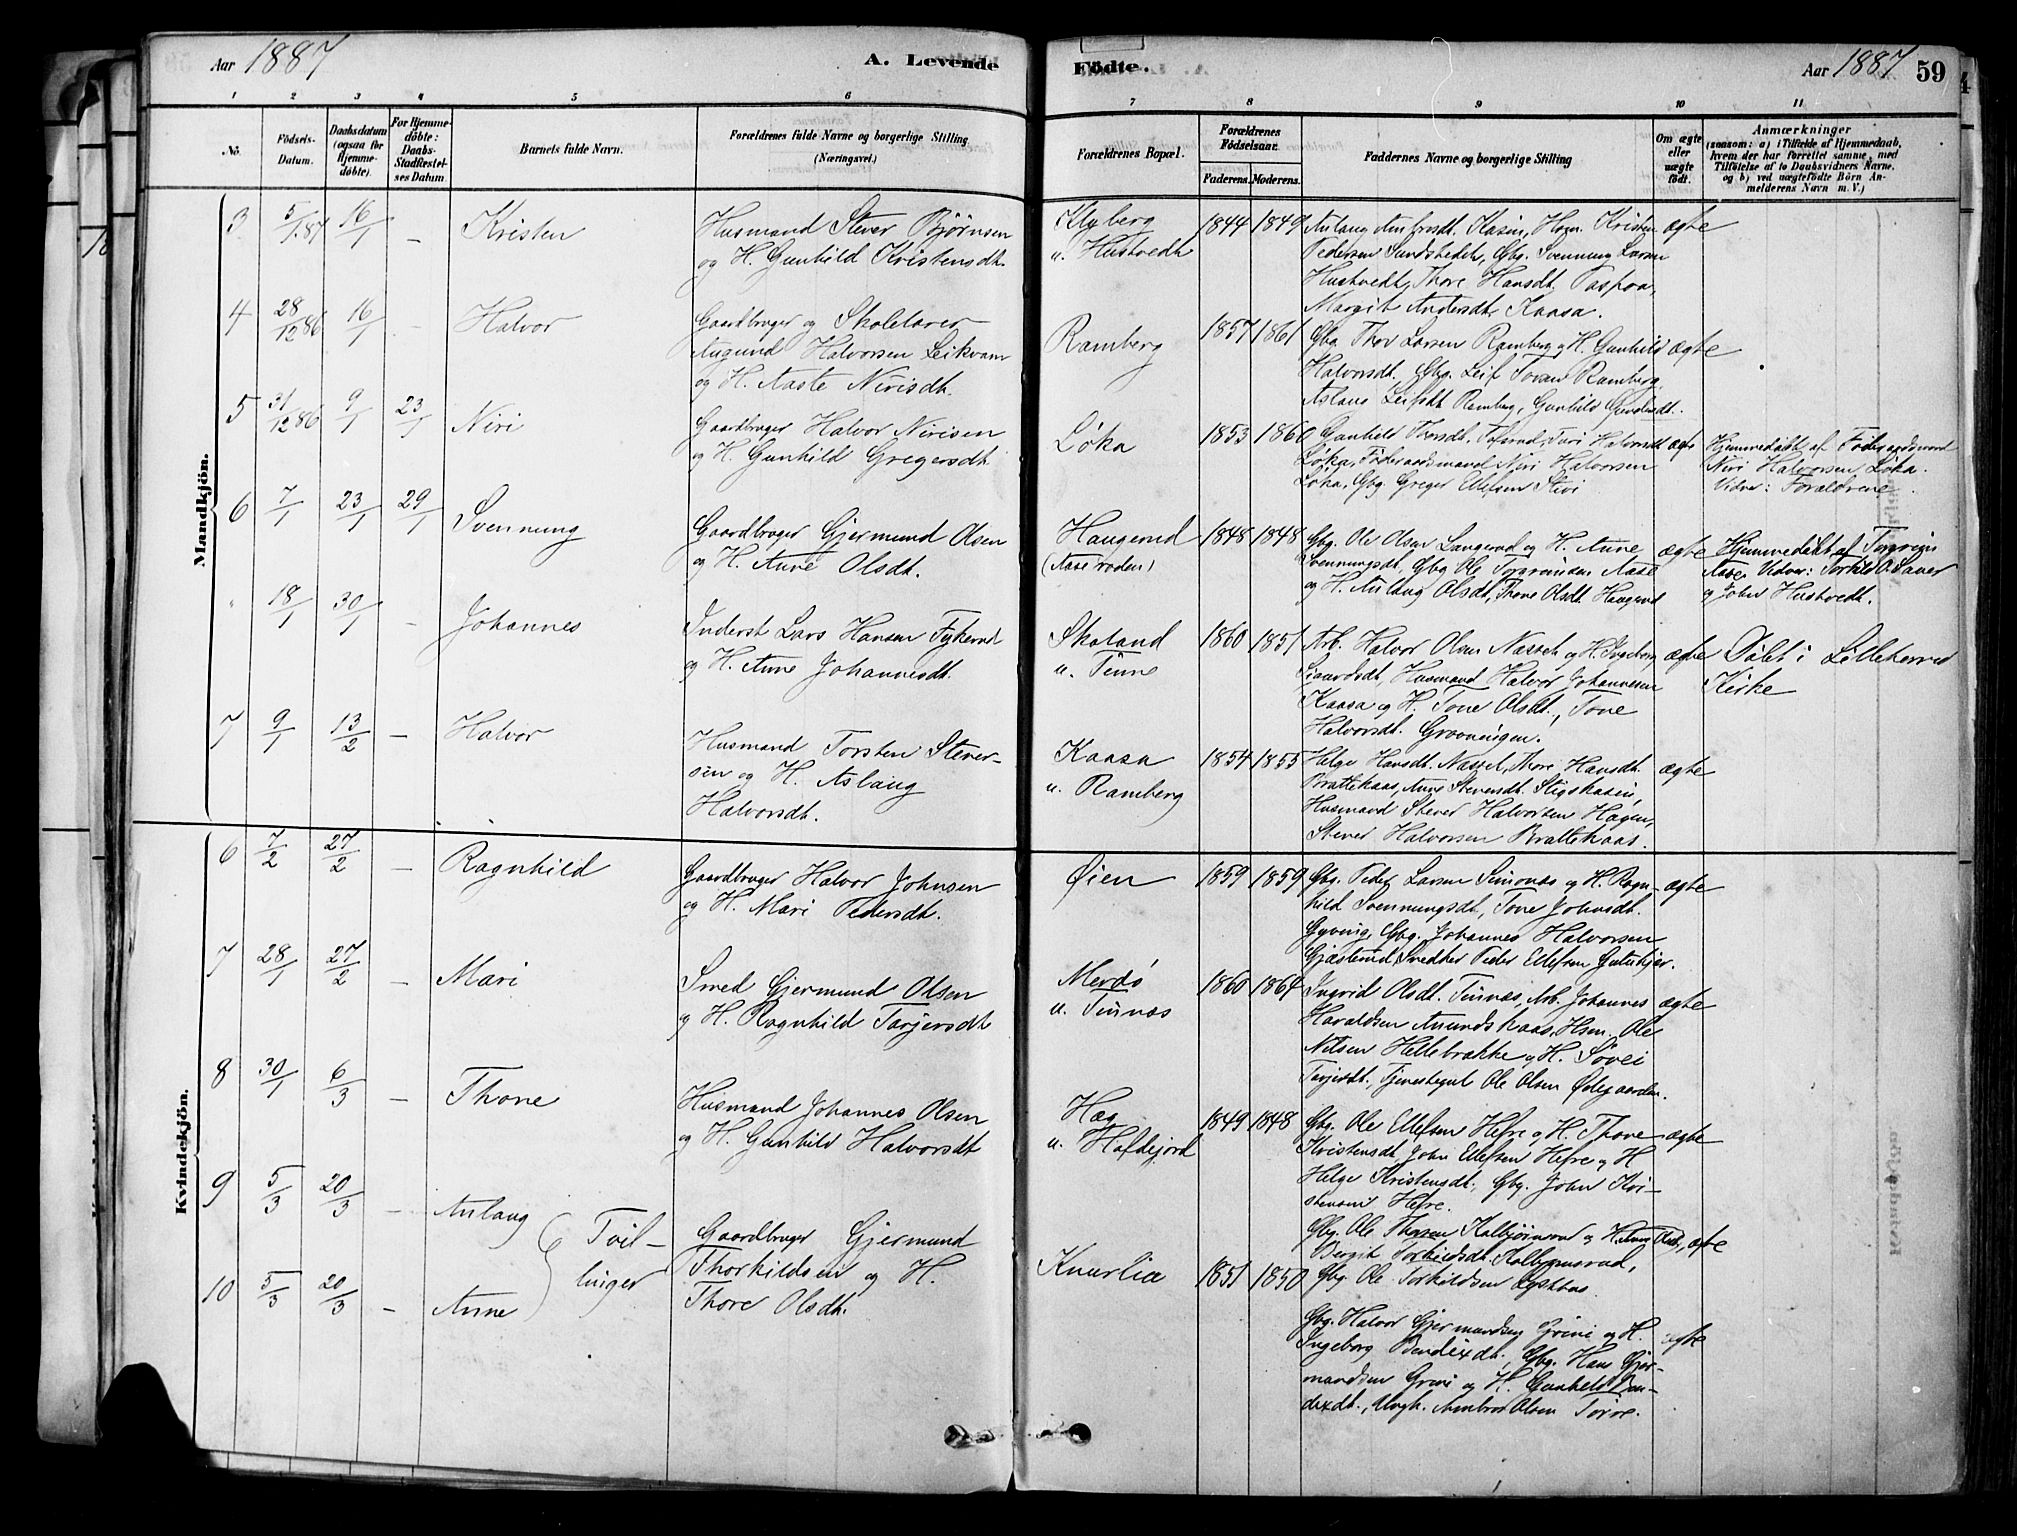 Aar 1887
A. Levende
Födte.
Aar 1887
59
1 2 3 4 5 6 7 8 9 10 11
No.
Födsels-
Datum.
Daabsdatum
(ogsaa for
Hjemme-
döbte).
For Hjemme-
döbte:
Daabs-
Stadfæstel-
ses Datum.
Barnets fulde Navn.
Forældrenes fulde Navne og borgerlige Stilling
(Næringsvei.)
Forældrenes Bopæl.
Forældrenes
Födselsaar.
Faderens. Moderens.
Faddernes Navne og borgerlige Stilling
Om ægte
eller
uægte
födt.
Anmærkninger
(saasom: a) i Tilfælde af Hjemmedaab,
hvem der har forrettet samme, med
Tilföielse af to Daabsvidners Navne,
og b) ved uægtefödte Börn An-
melderens Navn m. V.)
Mandkjön.
3 5/1 87 16/1 – Kristen
Husmand Stever Bjørnsen
og H. Gunhild Kristensdt.
Klyberg
u. Hustvedt
1844 1849
Aslaug Kasin, Hsm. Kristen
Pedersen Sundstedet, Gbg. Svenning Larsen
Hustvedt, Thore Hansdt.
Margit Andersdt. Kaasa.
ægte
4 28/12 86 16/1 – Halvor
Gaardbruger og Skolelærer
Augund Halvorsen Leikvam
og H. Aaste Nirisdt.
Ramberg
1857 1861
Gbg. Thor Larsen Ramberg og H. Gunhild
Halvorsdt. Gbg. Leif Ramberg,
Aslaug Leifsdt Ramberg, Gunhild
ægte
5 31/12 86 9/1 23/1 Niri
Gaardbruger Halvor Nirisen
og H. Gunhild Gregersdt.
Løka
1853 1860
Gunhild Thorsdt. Halvorsdt
Løka, Föderaadsmand Niri Halvorsen
Løka, Gbg. Greger Ellefsen Stivi
ægte
Hjemmedøbt af Föderaadsmand
Niri Halvorsen Løka.
Vidner: Forældrene.
6 7/1 23/1 29/1 Svennung
Gaardbruger Gjermund Olsen
og H. Anne Olsdt.
Haugerud
(Aaseroden)
1848 1848
Gbg. Ole Olsen Langerud og H. Anne
Svenningsdt, Gbg Ole Aase
og H. Aslaug Olsdt, Thone Olsdt. Haugerud
ægte
Hjemmedøbt af
Aase. Vidner:
og John Hustvedt.
" 18/1 30/1 – Johannes
Inderst Lars Hansen Fykerud
og H. Anne Johannesdt.
Skoland
u. Tinne
1860 1851
Arb. Halvor Olsen Næsset og H. Ingeborg
Sigurdsdt, Husmand Halvor Johannesen
Kaasa og H. Tone Olsdt., Tone
Halvorsdt. Grovningen.
ægte
Døbt i Lilleherred
Kirke
7 9/1 13/2 – Halvor
Husmand Torsten Stever-
sen og H. Aslaug
Halvorsdt.
Kaasa
u. Ramberg
1854 1855
Helge Hansdt. Næsset, Thore Hansdt.
Brattekaas, Anne Steversdt. Stigskasin,
Husmand Stever Halvorsen Hagen,
Stever Halvorsen Brattekaas.
ægte
Kvindekjön.
6 7/2 27/2 – Ragnhild
Gaardbruger Halvor Johnsen
og H. Mari Pedersdt.
Øien
1859 1859
Gbg. Peder Larsen Simonæs og H. Ragn-
hild Svenningsdt, Tone Johnsdt.
Gyving, Gbg. Johannes Halvorsen
Gjæsterud, Peder Ellefsen
ægte
7 28/1 27/2 – Mari
Smed Gjermund Olsen
og H. Ragnhild Tarjersdt
Merdø
u. Tinnæs
1860 1864
Ingrid Olsdt. Tinnæs, Arb. Johannes
Haraldsen Amundskaas, Hsm. Ole
Nilsen Hellebrække og H. Søvei
Tarjersdt., Tjenestegut Ole Olsen Ødegaarden.
ægte
8 30/1 6/3 – Thone
Husmand Johannes Olsen
og H. Gunhild Halvorsdt
Hæg
u. Hofdejord
1849 1848
Gbg. Ole Ellefsen Hefre og H. Thone
Kristensdt, John Ellefsen Hefre og H
Helge Kristensdt, Gbg. John Kri-
stensen Hefre.
ægte
9 5/3 20/3 – Aslaug
10 5/3 20/3 – Anne
Tvil-
linger
Gaardbruger Gjermund
Thorkildsen og H.
Thore Olsdt.
Knurlia
1851 1850
Gbg. Ole Thorsen Kolbjørnsrud og H.
Bergit Torkildsdt. Kolbjørnsrud,
Gbg. Ole Torkildsen
ægte
Gbg. Halvor Gjermundsen Grini og H.
Ingeborg Bendixdt., Gbg. Hans Gjer-
mundsen Grini og H. Gunhild Ben-
dixdt., Ungk. Ambros Olsen
ægte